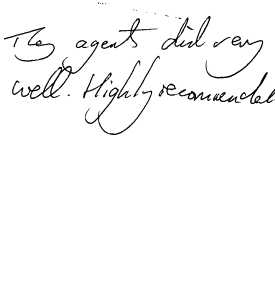 They agents did very
well. Highly recommended